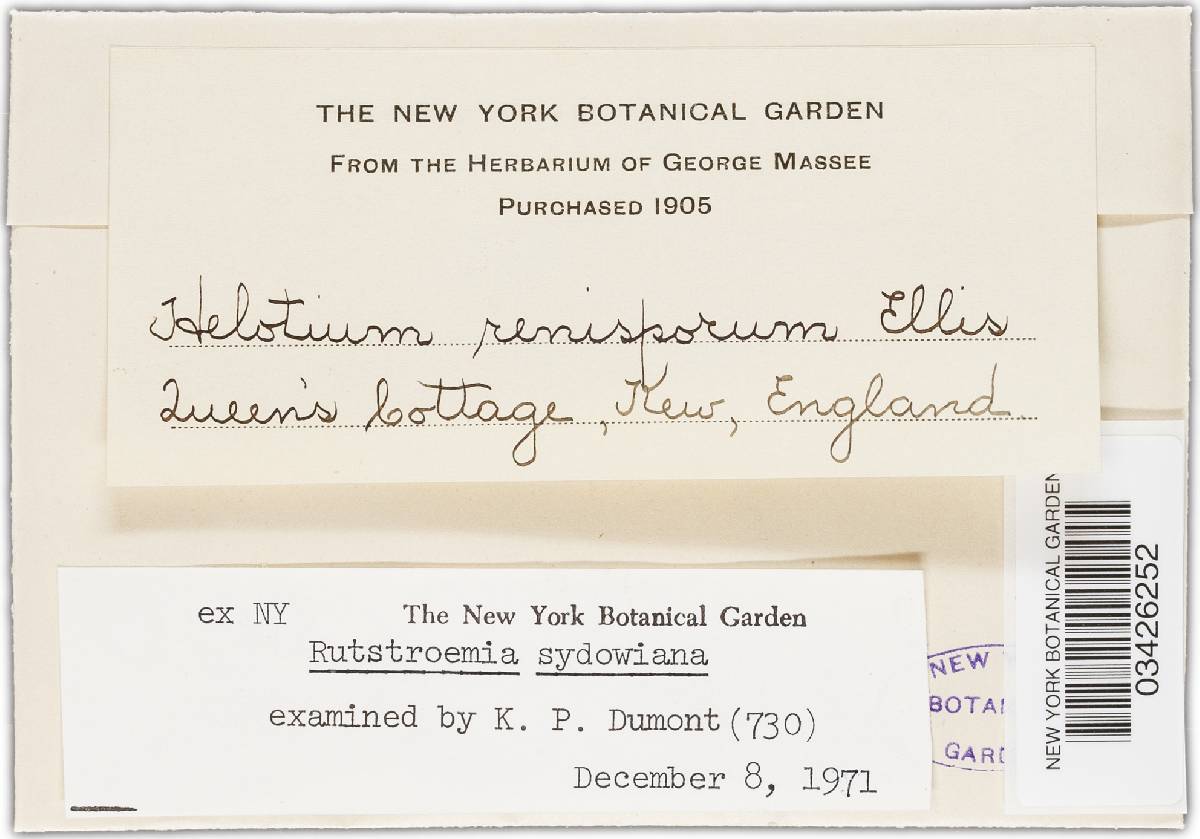 THE NEW YORK BOTANICAL GARDEN
FROM THE HERBARIUM OF GEORGE MASSEE
PURCHASED 1905
Helotium renisporum Ellis
Queen's Cottage, Kew, England.
ex NY The New York Botanical Garden
Rutstroemia sydowiana
examined by K. P. Dumont (730)
December 8, 1971
NEW
BOTA
GARD
NEW YORK BOTANICAL GARDEN
03426252